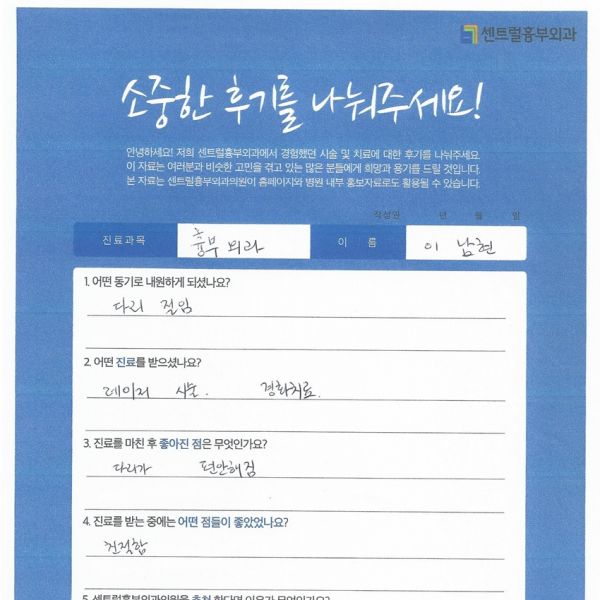 센트럴흉부외과
소중한 후기를 나눠주세요!
안녕하세요! 저희 센트럴흉부외과에서 경험했던 시술 및 치료에 대한 후기를 나눠주세요.
이 자료는 여러분과 비슷한 고민을 겪고 있는 많은 분들에게 희망과 용기를 드릴 것입니다.
본 자료는 센트럴흉부외과의원이 홈페이지와 병원 내부 홍보자료로도 활용될 수 있습니다.
작성일 년 월 일
진료과목 흉부외과 이 름 이남현
1. 어떤 동기로 내원하게 되셨나요?
다리 절임
2. 어떤 진료를 받으셨나요?
레이저 시술. 경화치료.
3. 진료를 마친 후 좋아진 점은 무엇인가요?
다리가 편안해짐
4. 진료를 받는 중에는 어떤 점들이 좋았었나요?
친절함
5. 센트럴흉부외과의원을 추천 한다면 이유가 무엇인가요?